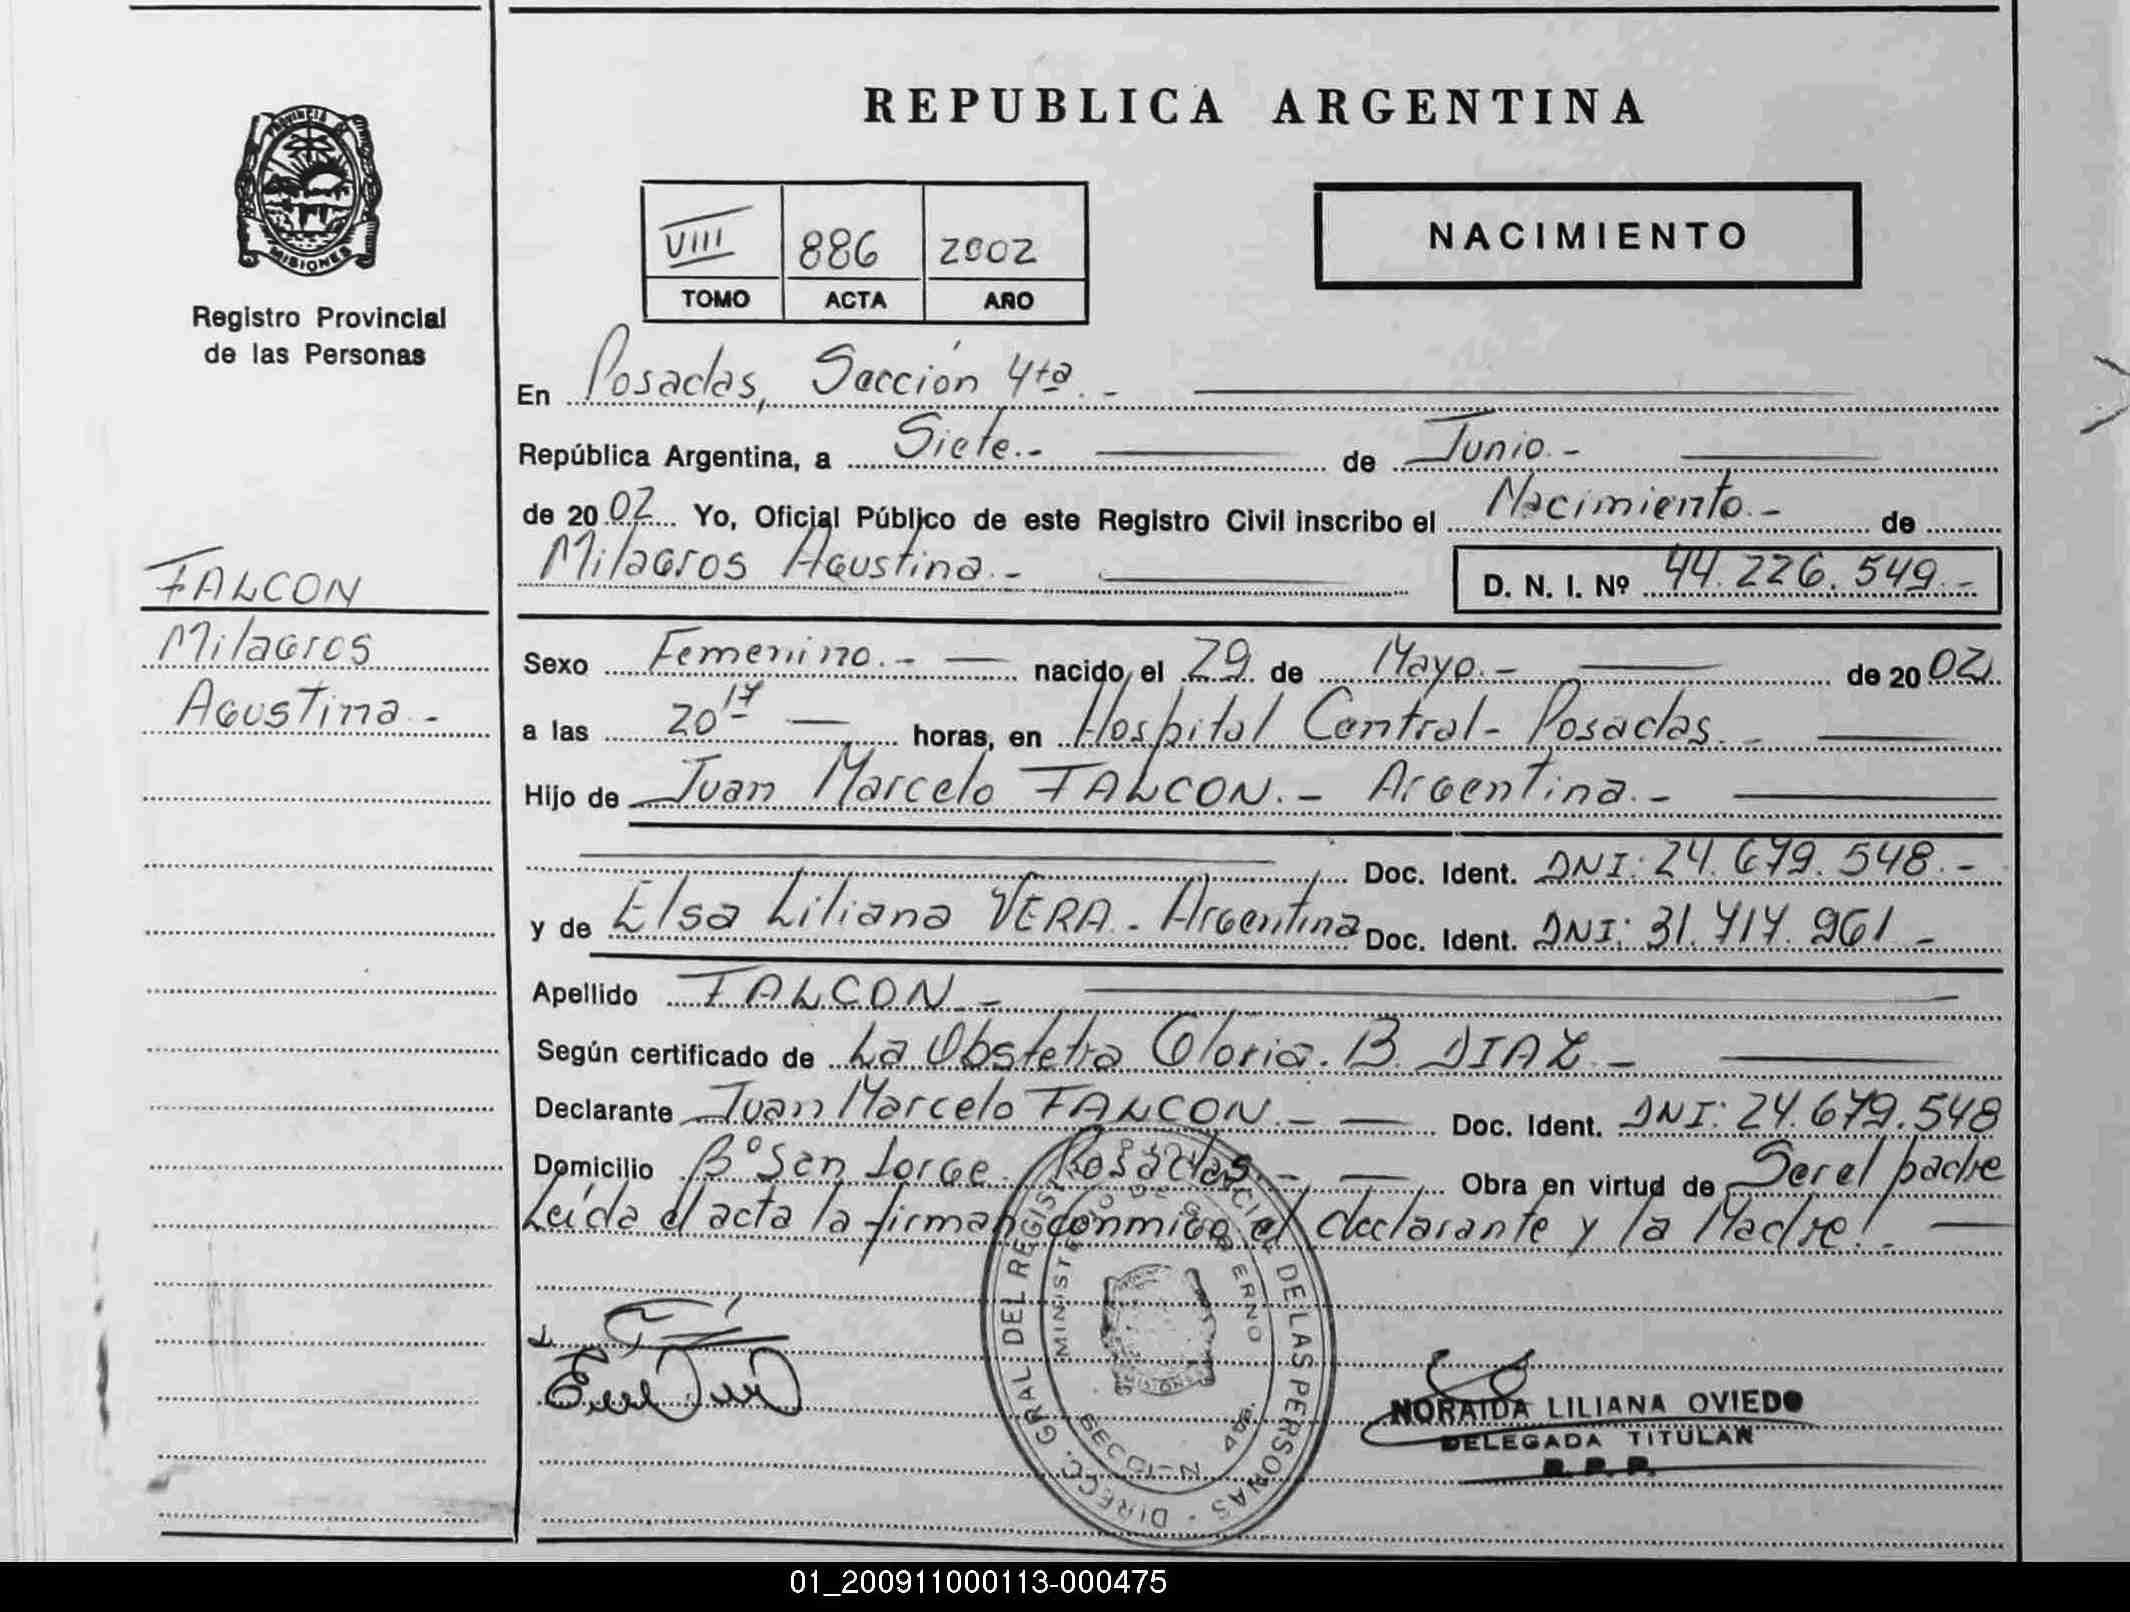 REPUBLICA ARGENTINA
PROVINCIA DE
MISIONES
Registro Provincial
de las Personas
VIII 886 2002
TOMO ACTA AÑO
NACIMIENTO
En Posadas, Sección 4ta.-
República Argentina, a Siete.- de Junio.-
de 2002 Yo, Oficial Público de este Registro Civil inscribo el Nacimiento.- de
Milagros Agustina.- D. N. I. Nº 44.226.549.-
FALCON
Milagros
Agustina.-
Sexo Femenino.- nacido el 29 de Mayo.- de 2002
a las 20 17 horas, en Hospital Central- Posadas.-
Hijo de Juan Marcelo FALCON.- Argentina.-
Doc. Ident. DNI: 24.679.548.-
y de Elsa Liliana VERA.- Argentina Doc. Ident. DNI: 31.717.961-
Apellido FALCON-
Según certificado de La Obstetra Gloria. B. DIAZ.-
Declarante Juan Marcelo FALCON.- Doc. Ident. DNI: 24.679.548
Domicilio Bº San Jorge. Posadas.- Obra en virtud de Ser el padre
Leída el acta la firman conmigo el declarante y la Madre!.-
DIREC. GRAL DEL REGIST. DE LAS PERSONAS
MINISTERIO DE GOBIERNO
SECCION 4ta.
NORAIDA LILIANA OVIEDO
DELEGADA TITULAR
R. P. P.
01_200911000113-000475